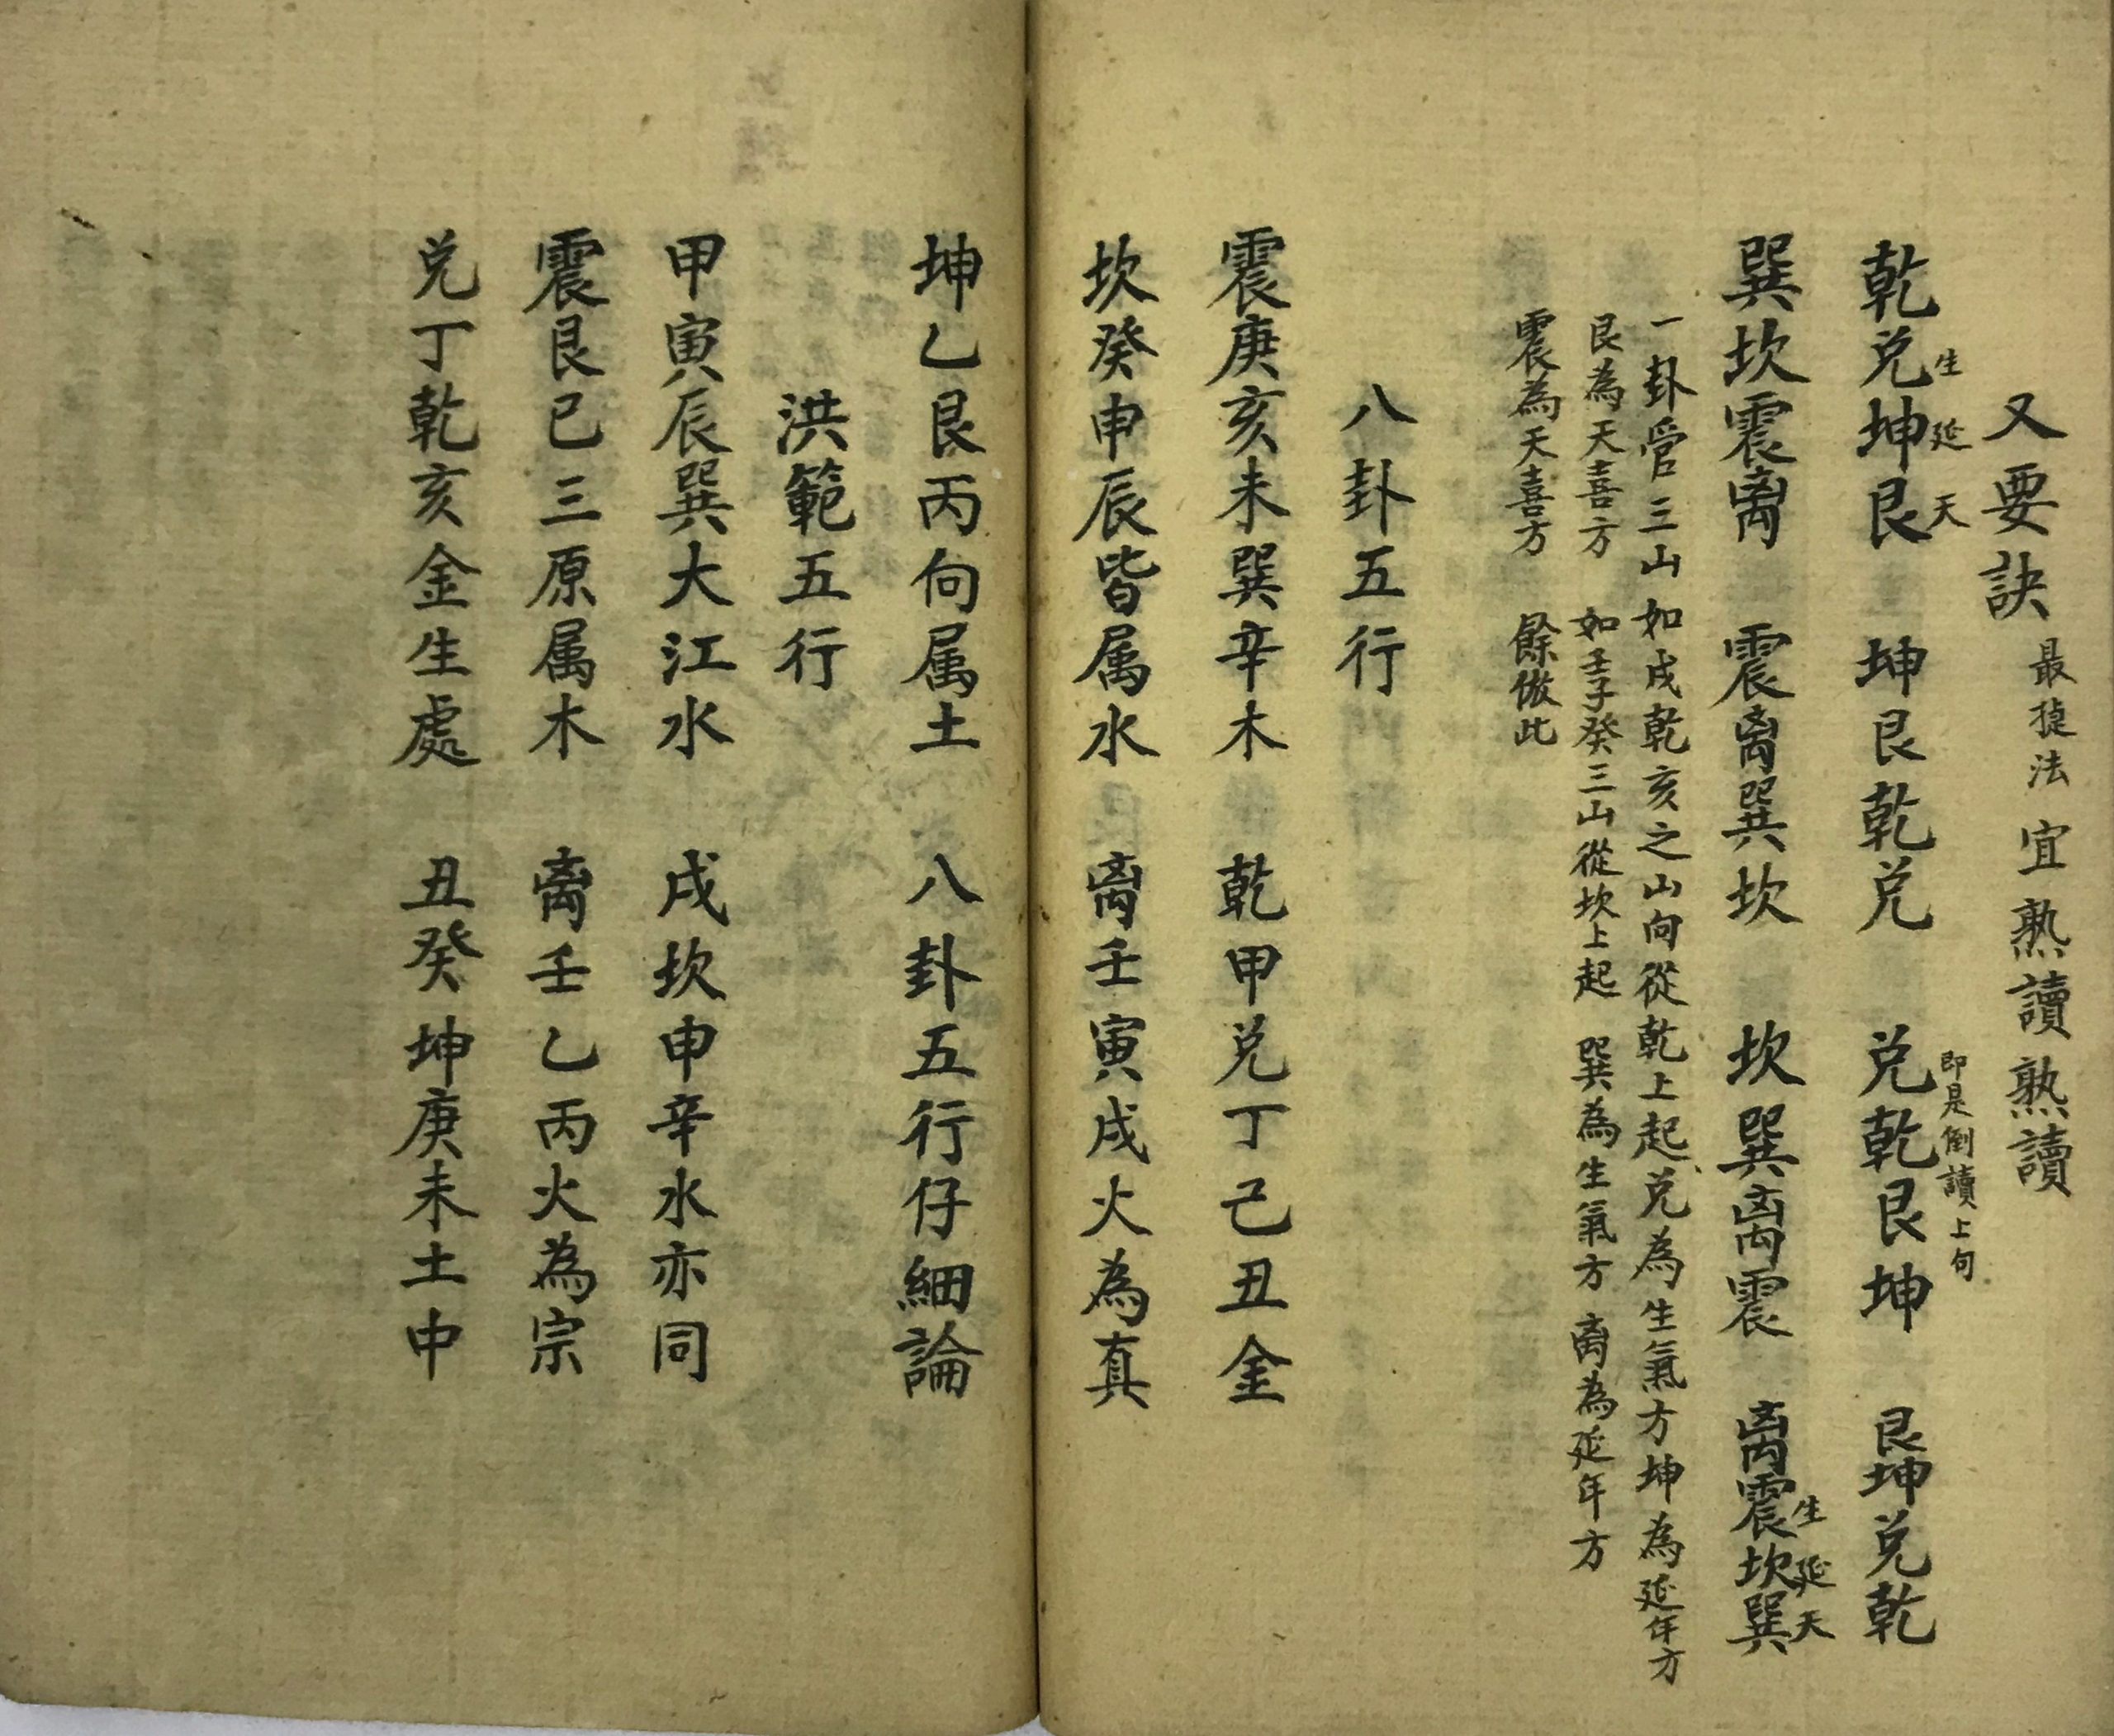 又要訣 最捷法 宜熟讀熟讀
乾兑坤艮 坤艮乾兑 兑乾艮坤 艮坤兑乾
生延天 即是倒讀上句
巽坎震离 震离巽坎 坎巽离震 离震坎巽
生延天
一卦管三山 如戌乾亥之山向從乾上起兑為生氣方坤為延年方
艮為天喜方 如壬子癸三山從坎上起 巽為生氣方 离為延年方
震為天喜方 餘倣此
八卦五行
震庚亥未巽辛木 乾甲兑丁己丑金
坎癸申辰皆属水 离壬寅戌火為真
坤乙艮丙向属土 八卦五行仔細論
洪範五行
甲寅辰巽大江水 戌坎申辛水亦同
震艮已三原属木 离壬乙丙火為宗
兑丁乾亥金生處 丑癸坤庚未土中